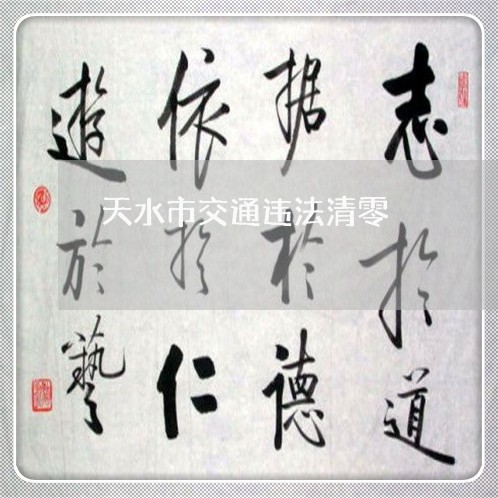 志於道
据於德
依於仁
遊於藝
天水市交通违法清零